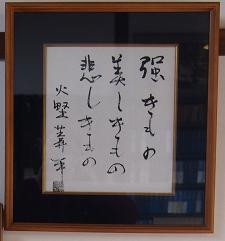 強きもの
美しきもの
悲しきもの
火野葦平